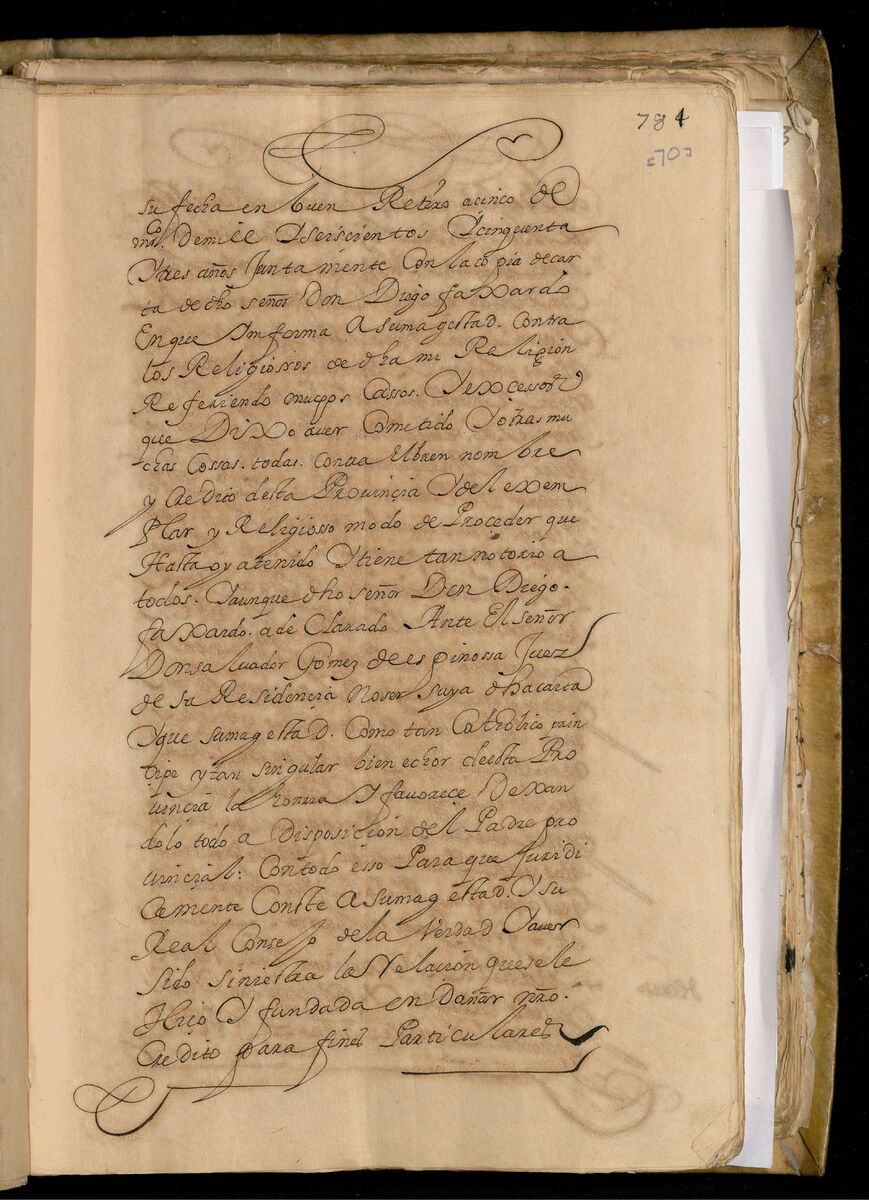 784
=70=
su fecha en buen Retiro a cinco de
Demill Y seiscientos Y cinquenta
Y tres años Junta mente Con la copia de car
ta de dho señor Don Diego faxardo
En que Ynforma A su magestad. Contra
los Religiossos de dha mi Religion
Refiriendo muchos Cassos. Y excessos
que Dixo aver Cometido Y otras mu
chas Cossas. todas. Contra El buen nombre
y Credito desta Provinçia Y del exem
plar y Religiosso modo de Proceder que
Hasta oy a tenido Y tiene tan notorio a
todos. Y aunque dho señor Don Diego.
faxardo. a de Clarado Ante El señor
Don saluador Gomez de espinossa Juez
de su Residençia No ser suya dha carta
Y que su magestad. Como tan Catholico prin
çipe y tan singular bien echor de esta Pro
uinçia la honrra Y favorece Dexan
dolo todo a Disposiçion del Padre pro
uinçial: Con todo esso Para que Juridi
Camente Conste A su magestad. Y su
Real Consejo de la Verdad Y aver
sido siniestra la Relaçion que se le
Hiço Y fundada en Dañar nro.
Credito para fines Particulares